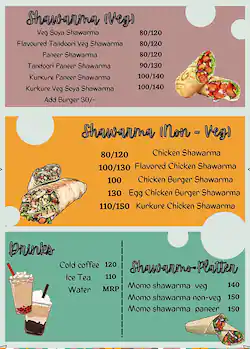 Shawarma (Veg)
Veg Soya Shawarma 80/120
Flavoured Tandoori Veg Shawarma 80/120
Paneer Shawarma 80/120
Tandoori Paneer Shawarma 90/130
Kurkure Paneer Shawarma 100/140
Kurkure Veg Soya Shawarma 100/140
Add Burger 30/-
Shawarma (Non - Veg)
80/120 Chicken Shawarma
100/130 Flavored Chicken Shawarma
100 Chicken Burger Shawarma
130 Egg Chicken Burger Shawarma
110/150 Kurkure Chicken Shawarma
Drinks
Cold coffee 120
Ice Tea 110
Water MRP
Shawarma-Platter
Momo shawarma veg 140
Momo shawarma non-veg 150
Momo shawarma paneer 150